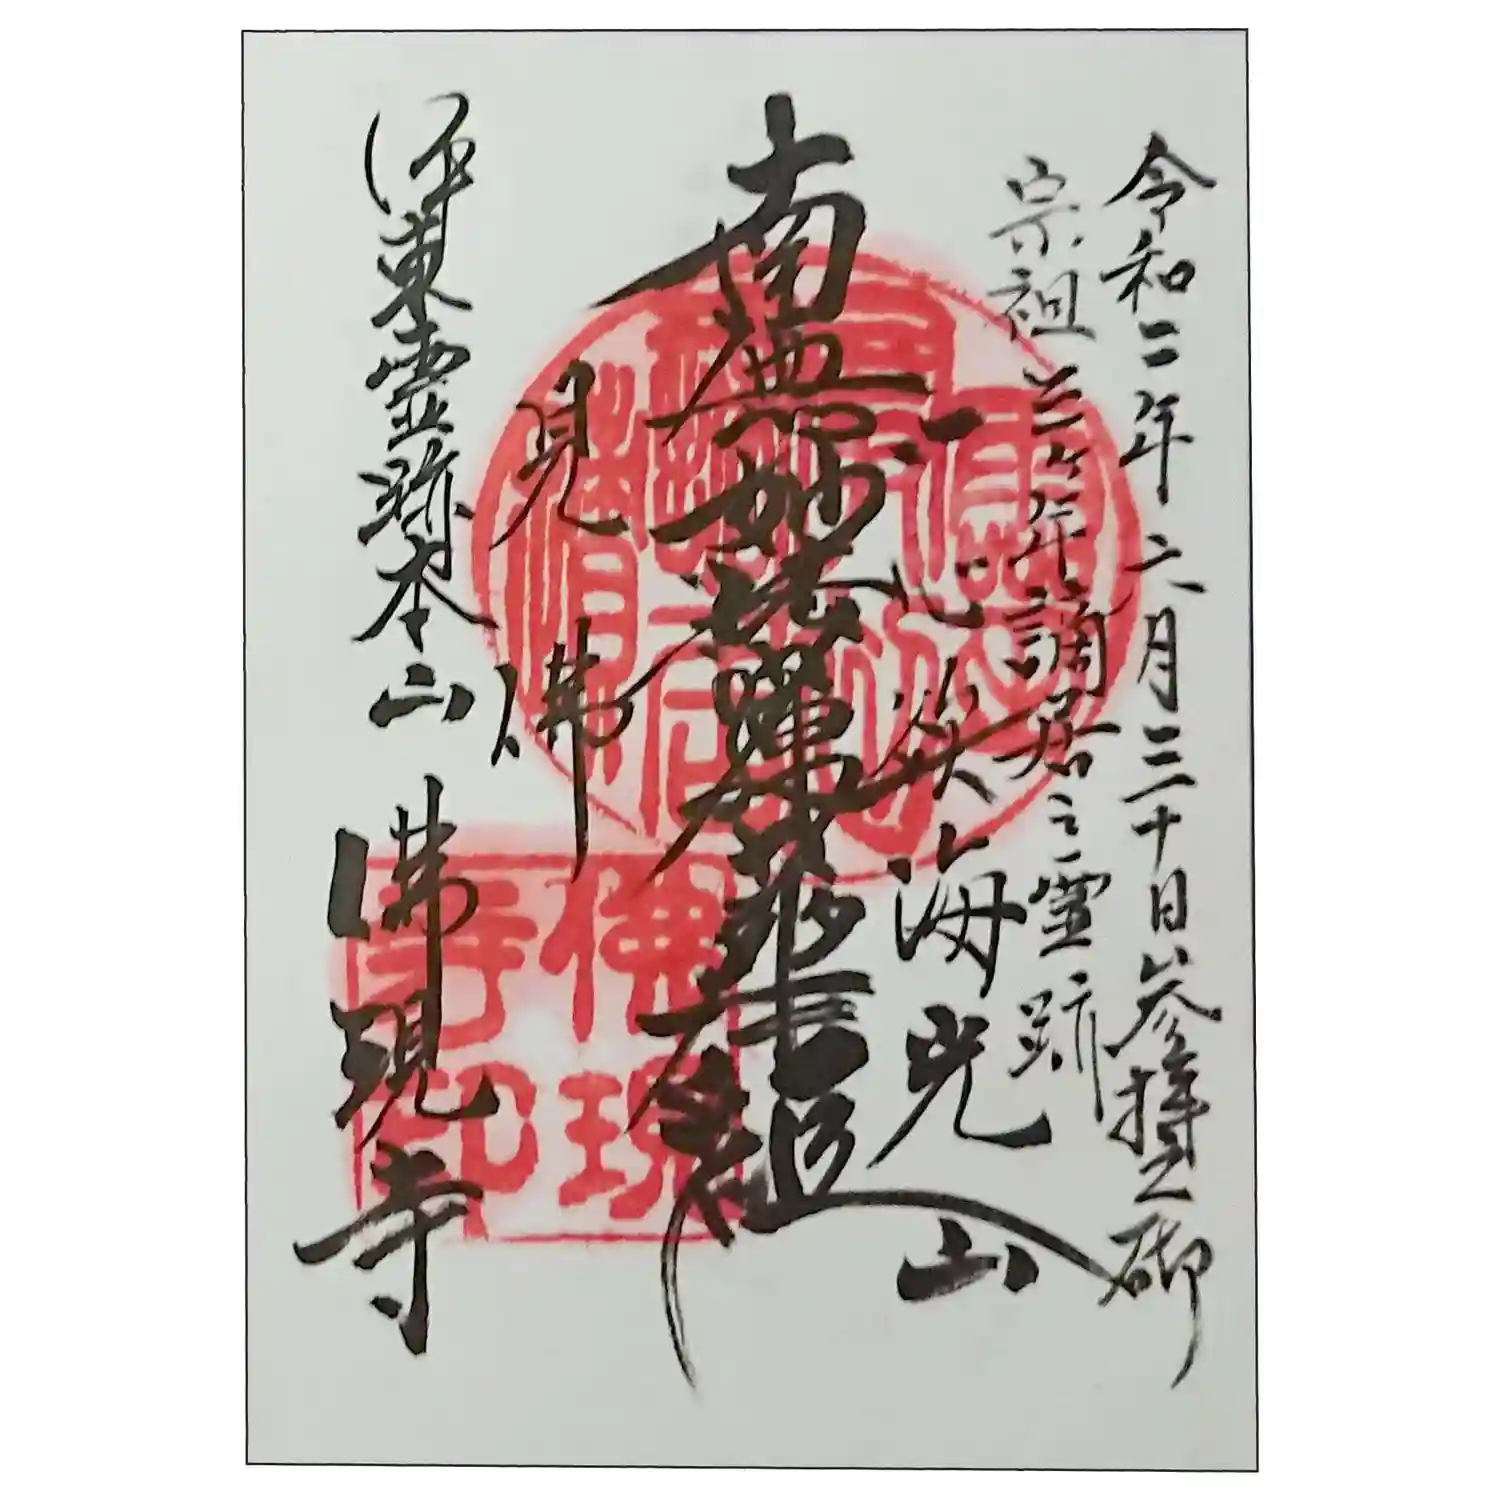 令和二年六月三十日参拝之砌
宗祖三ヶ年謫居之霊跡
一心欲
海光山
南無妙法蓮華經
見佛
伊東霊跡本山
佛現寺
佛現寺印